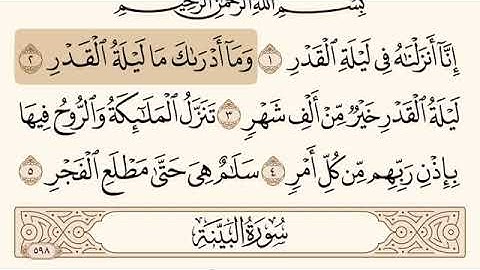 بِسْمِ ٱللَّهِ ٱلرَّحْمَٰنِ ٱلرَّحِيمِ
إِنَّآ أَنزَلْنَٰهُ فِى لَيْلَةِ ٱلْقَدْرِ ١ وَمَآ أَدْرَىٰكَ مَا لَيْلَةُ ٱلْقَدْرِ ٢
لَيْلَةُ ٱلْقَدْرِ خَيْرٌ مِّنْ أَلْفِ شَهْرٍ ٣ تَنَزَّلُ ٱلْمَلَٰٓئِكَةُ وَٱلرُّوحُ فِيهَا
بِإِذْنِ رَبِّهِم مِّن كُلِّ أَمْرٍ ٤ سَلَٰمٌ هِىَ حَتَّىٰ مَطْلَعِ ٱلْفَجْرِ ٥
سُورَةُ ٱلْبَيِّنَةِ
٥٩٨